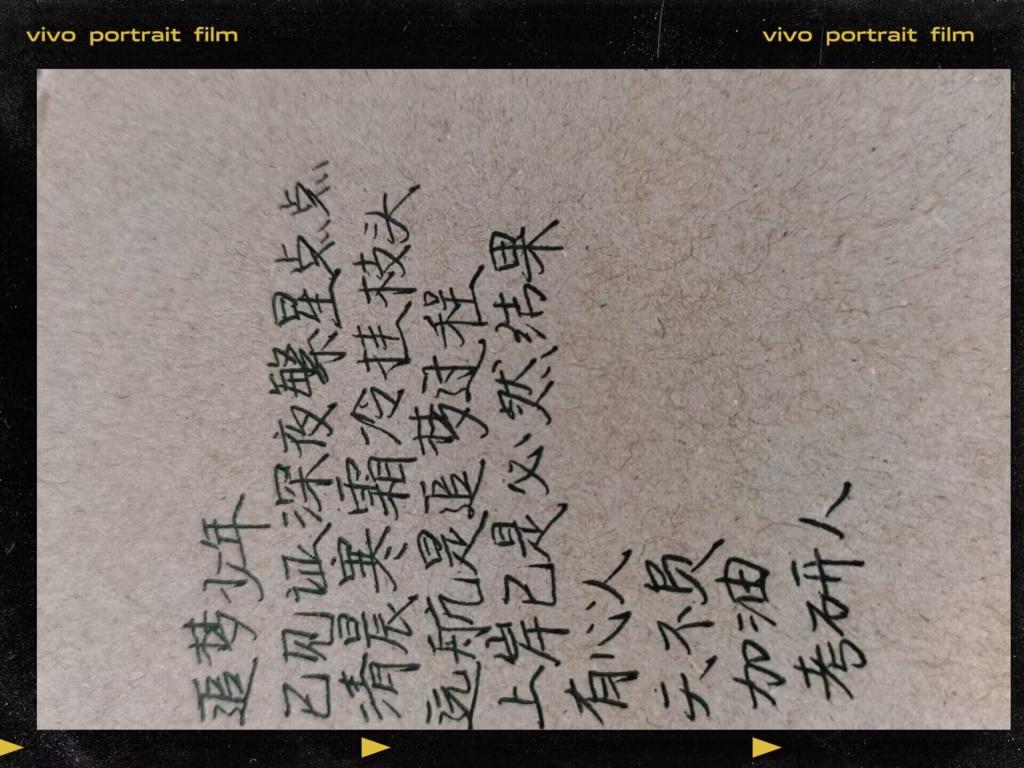 vivo portrait film
vivo portrait film
追梦少年
已见证深夜繁星点点
清晨寒霜冷挂枝头
远航是追梦过程
上岸已是必然结果
有心人
天不负
加油
考研人